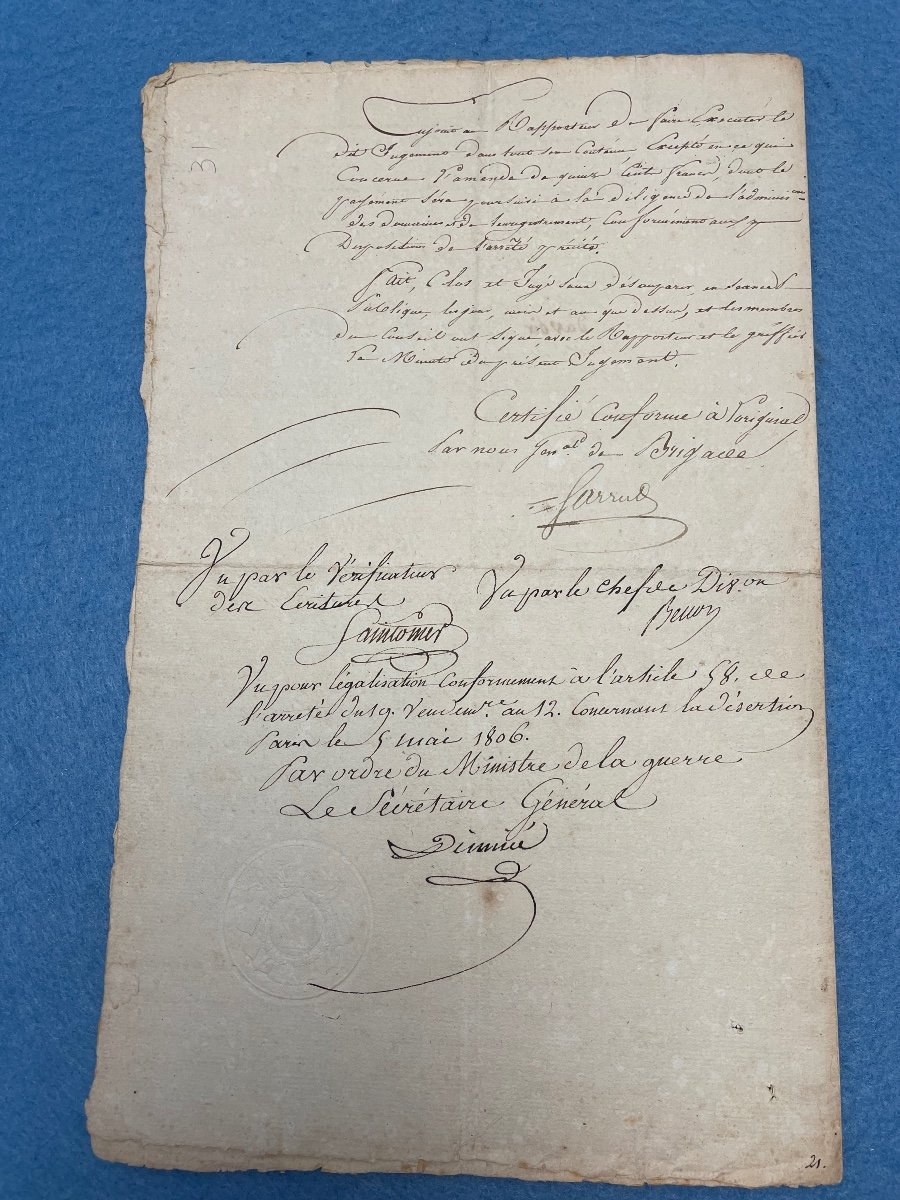 Enjoint au Rapporteur de faire Exécuter le
dit Jugement dans tout son Contenu Excepté en ce qui
Concerne l'amende de quinze Cent francs, dont le
payement Sera poursuivi à la diligence de l'admini.on
des domaines & de l'enregistrement, Conformément aux
Dispositions de l'arrêté précité.
Fait, Clos et Jugé Sans désemparer en Séance
Publique, les jour, mois et an que dessus, et les membres
du Conseil ont Signé, avec le Rapporteur et le gréffier
La Minute du présent Jugement.
Certifié Conforme à l'original
Par nous Gen.al de Brigade
Sarrut
Vu par le Vérificateur
des Ecritures
Saintomer
Vu par le chef de Div.on
Vu pour légalisation conformement à l'article 58. de
l'arreté du 19. Vendem.re an 12. Concernant la désertion
Paris le 5 mai 1806.
Par ordre du Ministre de la guerre
Le Sécrétaire Général
31
21.